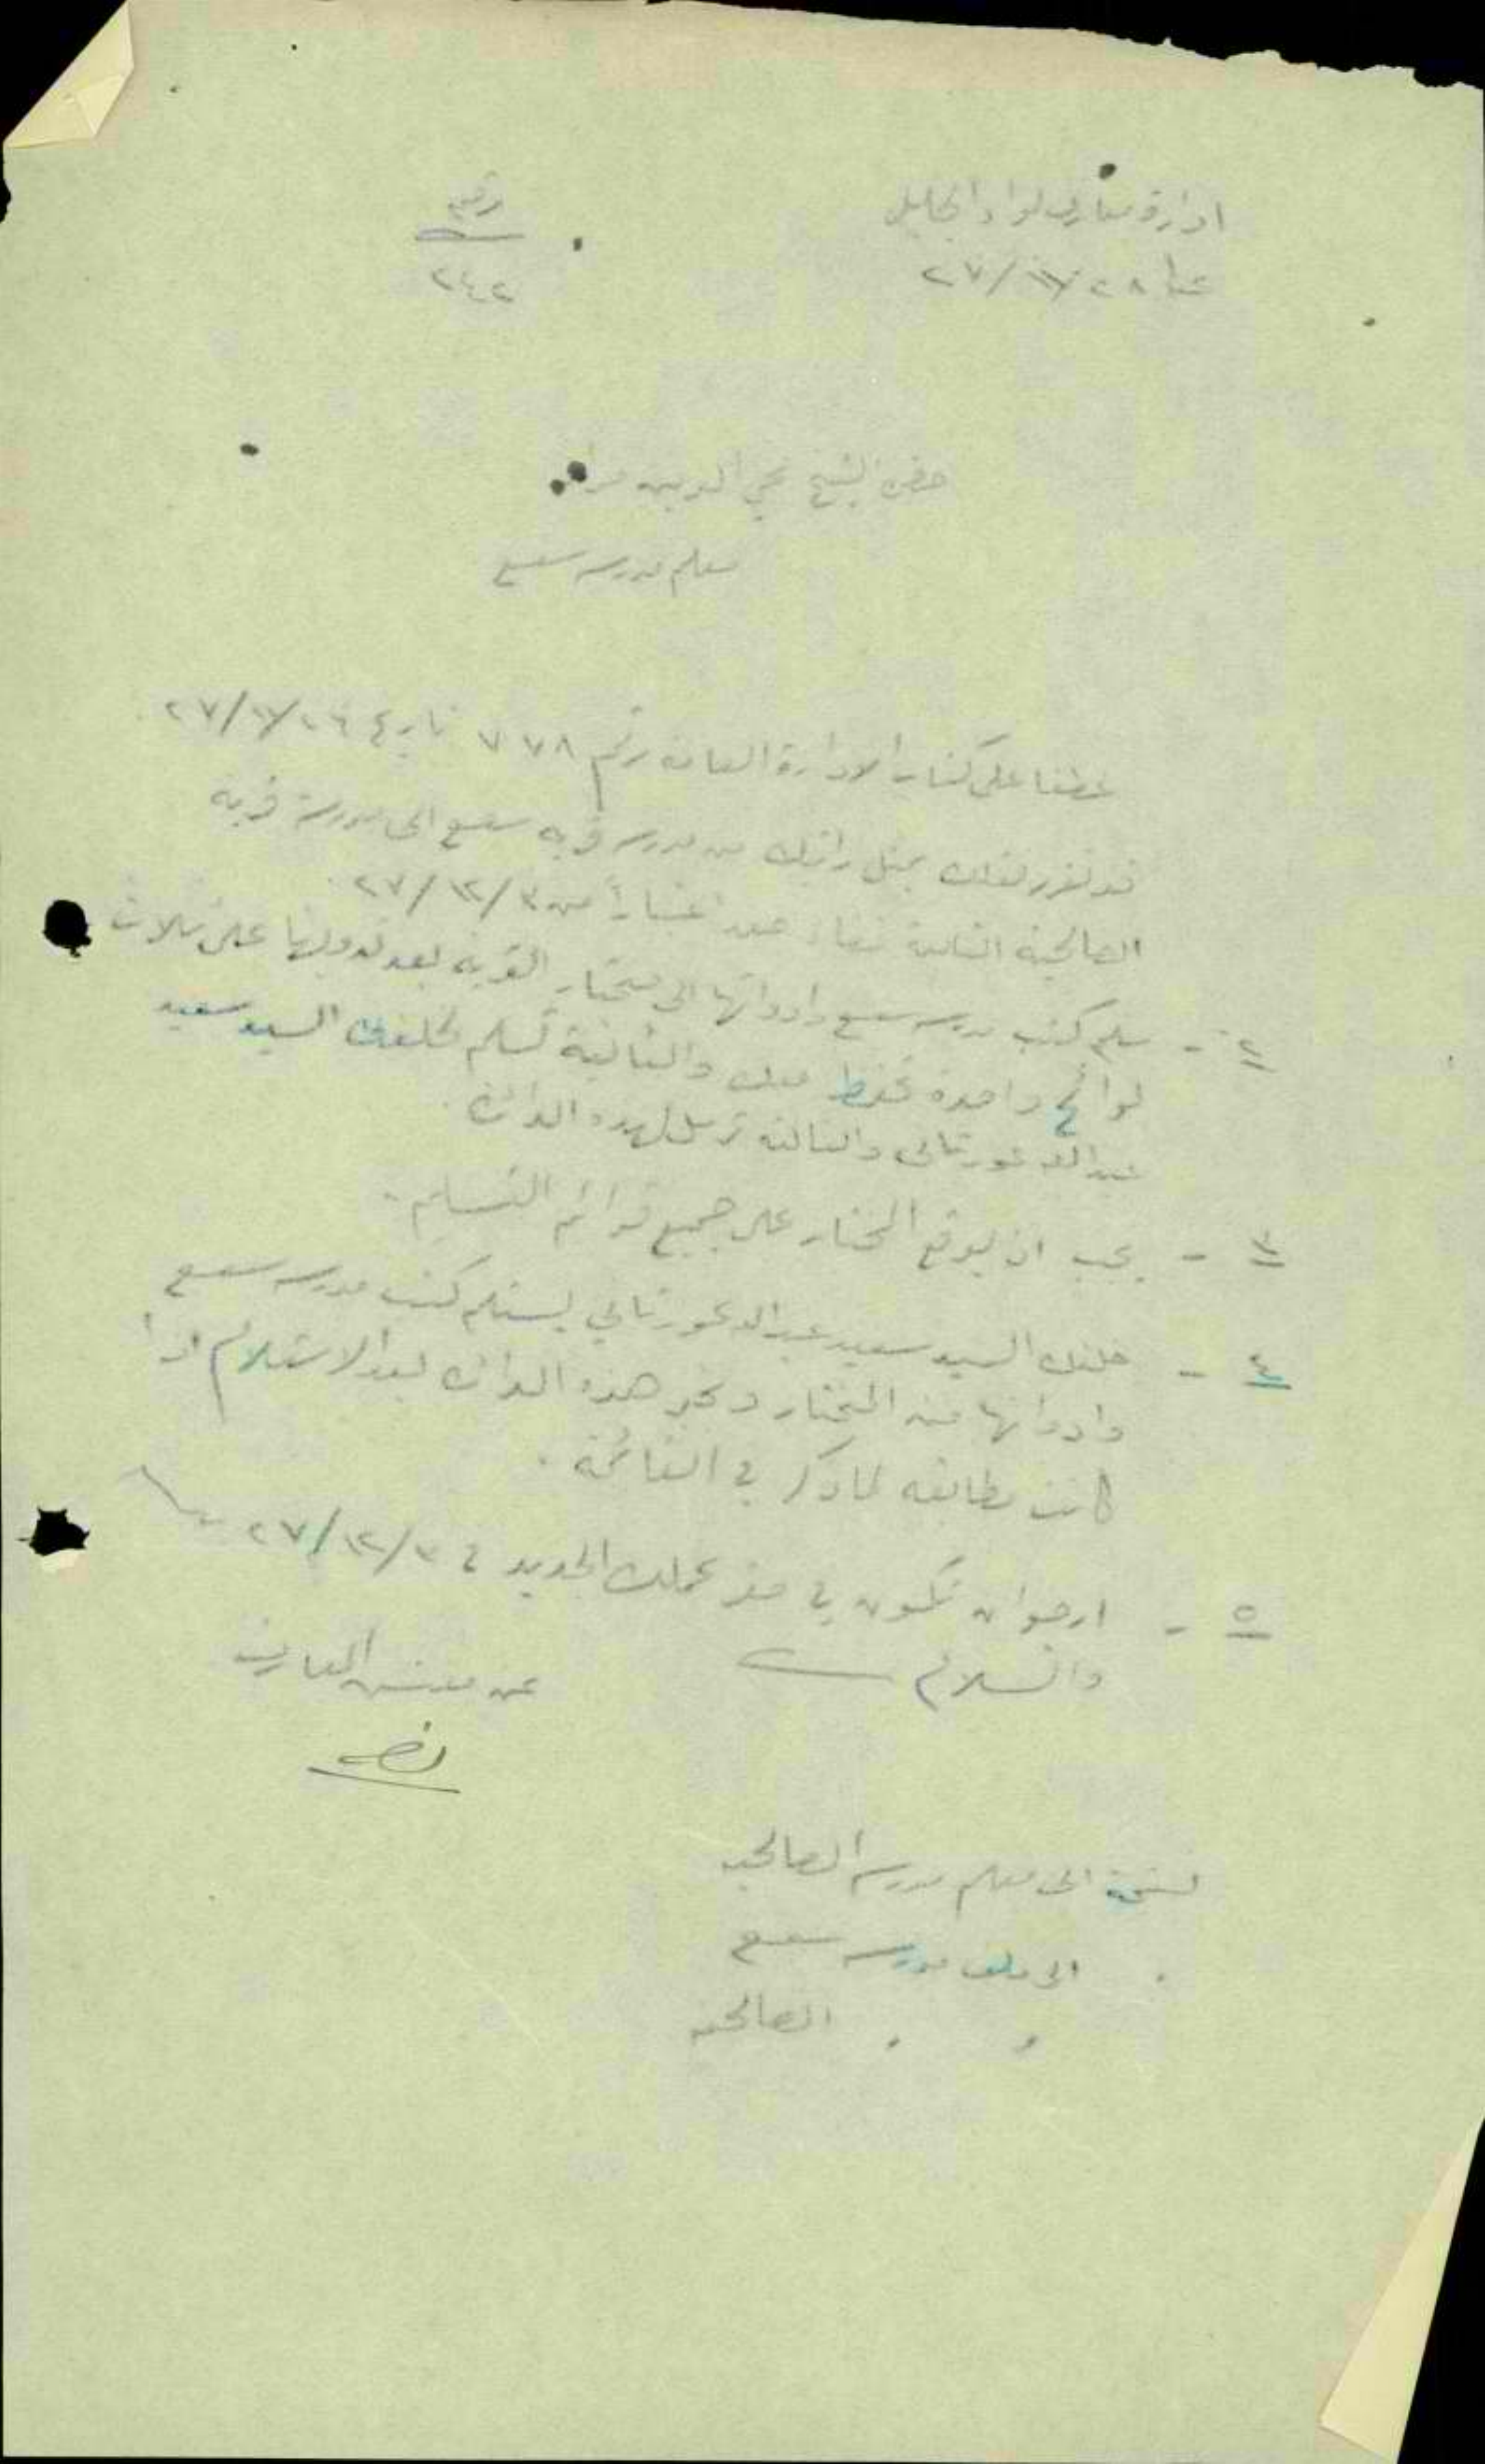 ادارة معارف لواء الجليل
عكا ٢٨ /١١/ ٢٧
رقم
٢٤٢
حضرة الشيخ محي الدين مراد
معلم مدرسة سعسع
عطفا على كتاب الادارة العامة رقم ٧٧٨ تاريخ ٢٦/١١/٢٧
قد تقرر نقلك بمثل راتبك من مدرسة قرية سعسع الى مدرسة قرية
الصالحية التابعة قضاء صفد اعتباراً من ٣/١٢/٢٧
٢ - سلم كتب مدرسة سعسع وادواتها الى مختار القرية بعد تدوينها على ثلاث
لوائح واحدة تحفظ معك والثانية تسلم لخلفك السيد سعيد
عبدالله غورتاني والثالثة ترسل لهذه الدائرة .
٣ - يجب ان يوقع المختار على جميع قوائم التسليم .
٤ - خلفك السيد سعيد عبدالله غورتاني يستلم كتب مدرسة سعسع
وادواتها من المختار ويخبر هذه الدائرة بعد الاستلام اذا
كانت مطابقة لما ذكر في القائمة .
٥ - ارجو ان تكون في مقر عملك الجديد في ٣/١٢/٢٧
والسلام
عن مفتش المعارف
نسخة الى معلم مدرسة الصالحية
. الى ملف مدرسة سعسع
. . الصالحية